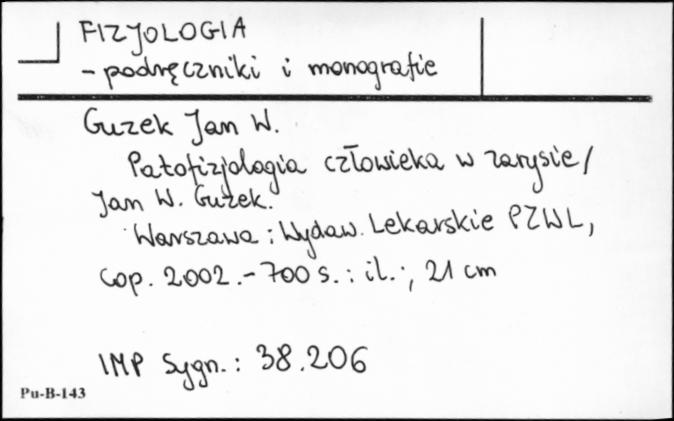 FIZJOLOGIA
- podręczniki i monografie
Guzek Jan W.
Patofizjologia człowieka w zarysie /
Jan W. Guzek.
Warszawa : Wydaw. Lekarskie PZWL,
cop. 2002. - 700 s. : il. ; 21 cm
IMP Sygn. : 38.206
Pu-B-143